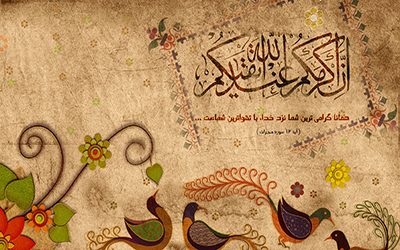 إن أكرمكم عند الله أتقاكم
همانا گرامی ترین شما نزد خدا، با تقواترین شماست ...
(آیه ۱۳ سوره حجرات)